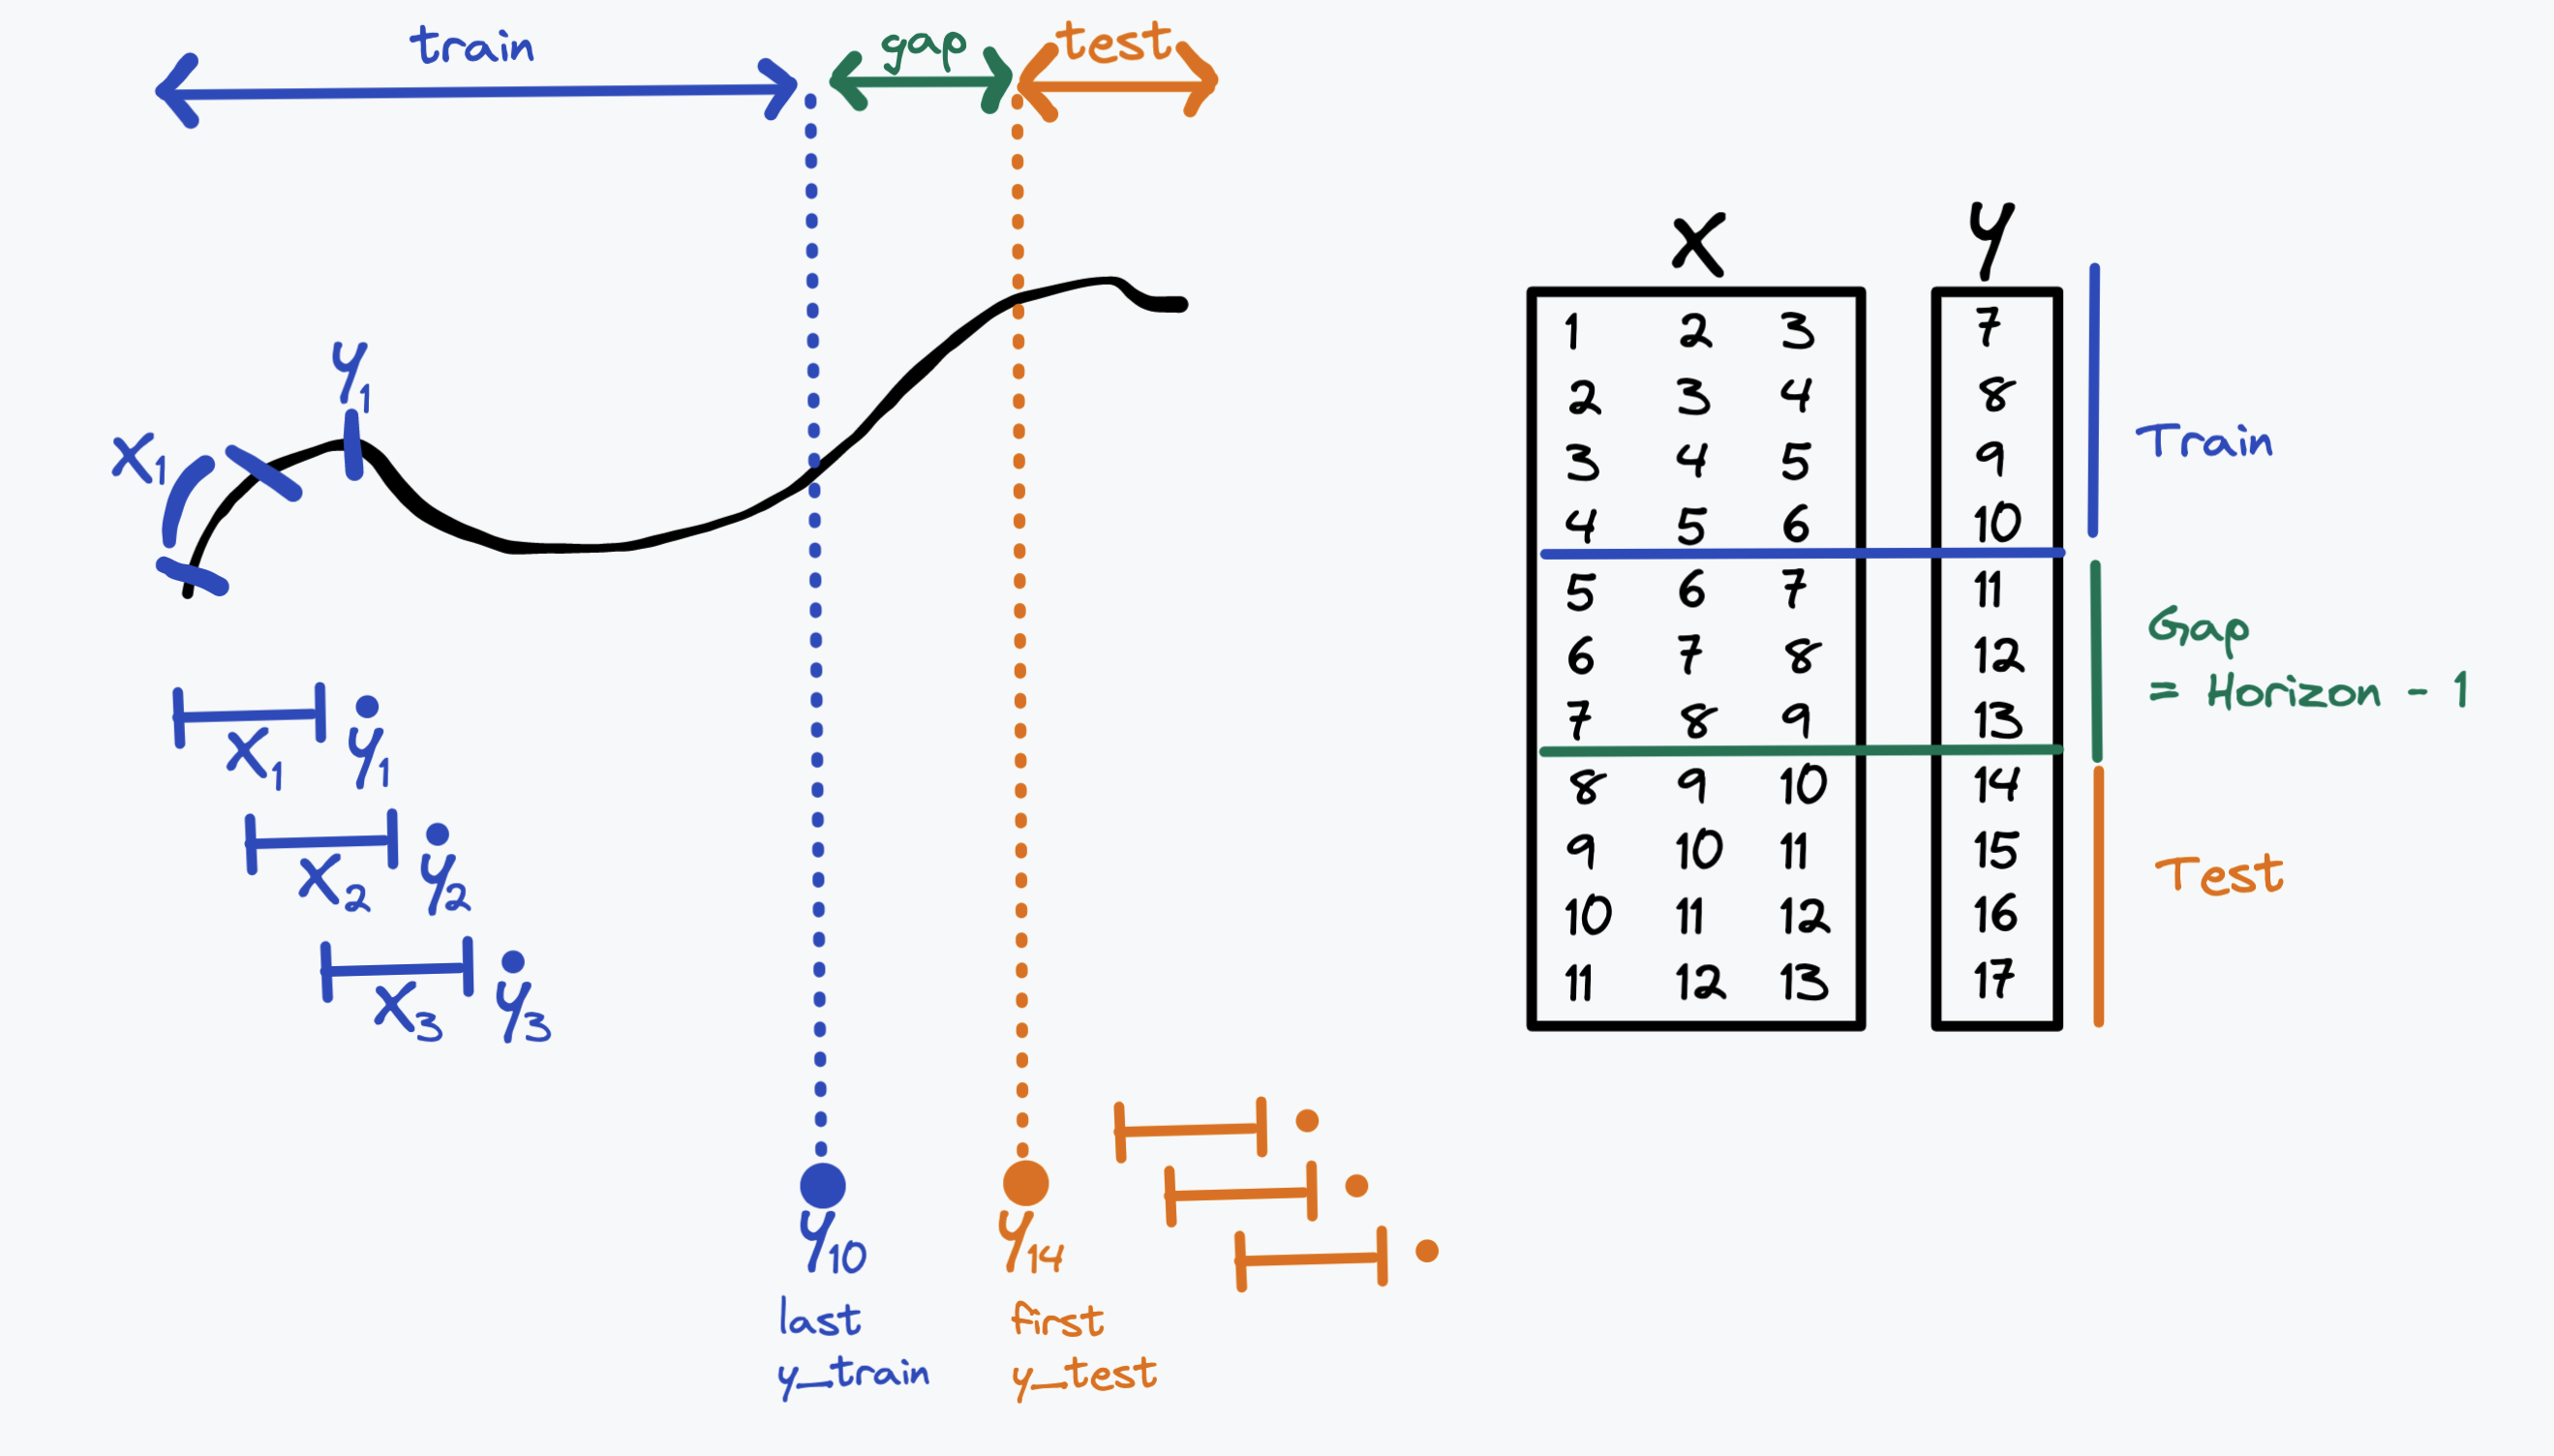 train
gap
test
y1
x1
x1
y1
x2
y2
x3
y3
y10
last
y_train
y14
first
y_test
X
y
1 2 3 7
2 3 4 8
3 4 5 9
4 5 6 10
5 6 7 11
6 7 8 12
7 8 9 13
8 9 10 14
9 10 11 15
10 11 12 16
11 12 13 17
Train
Gap
= Horizon - 1
Test